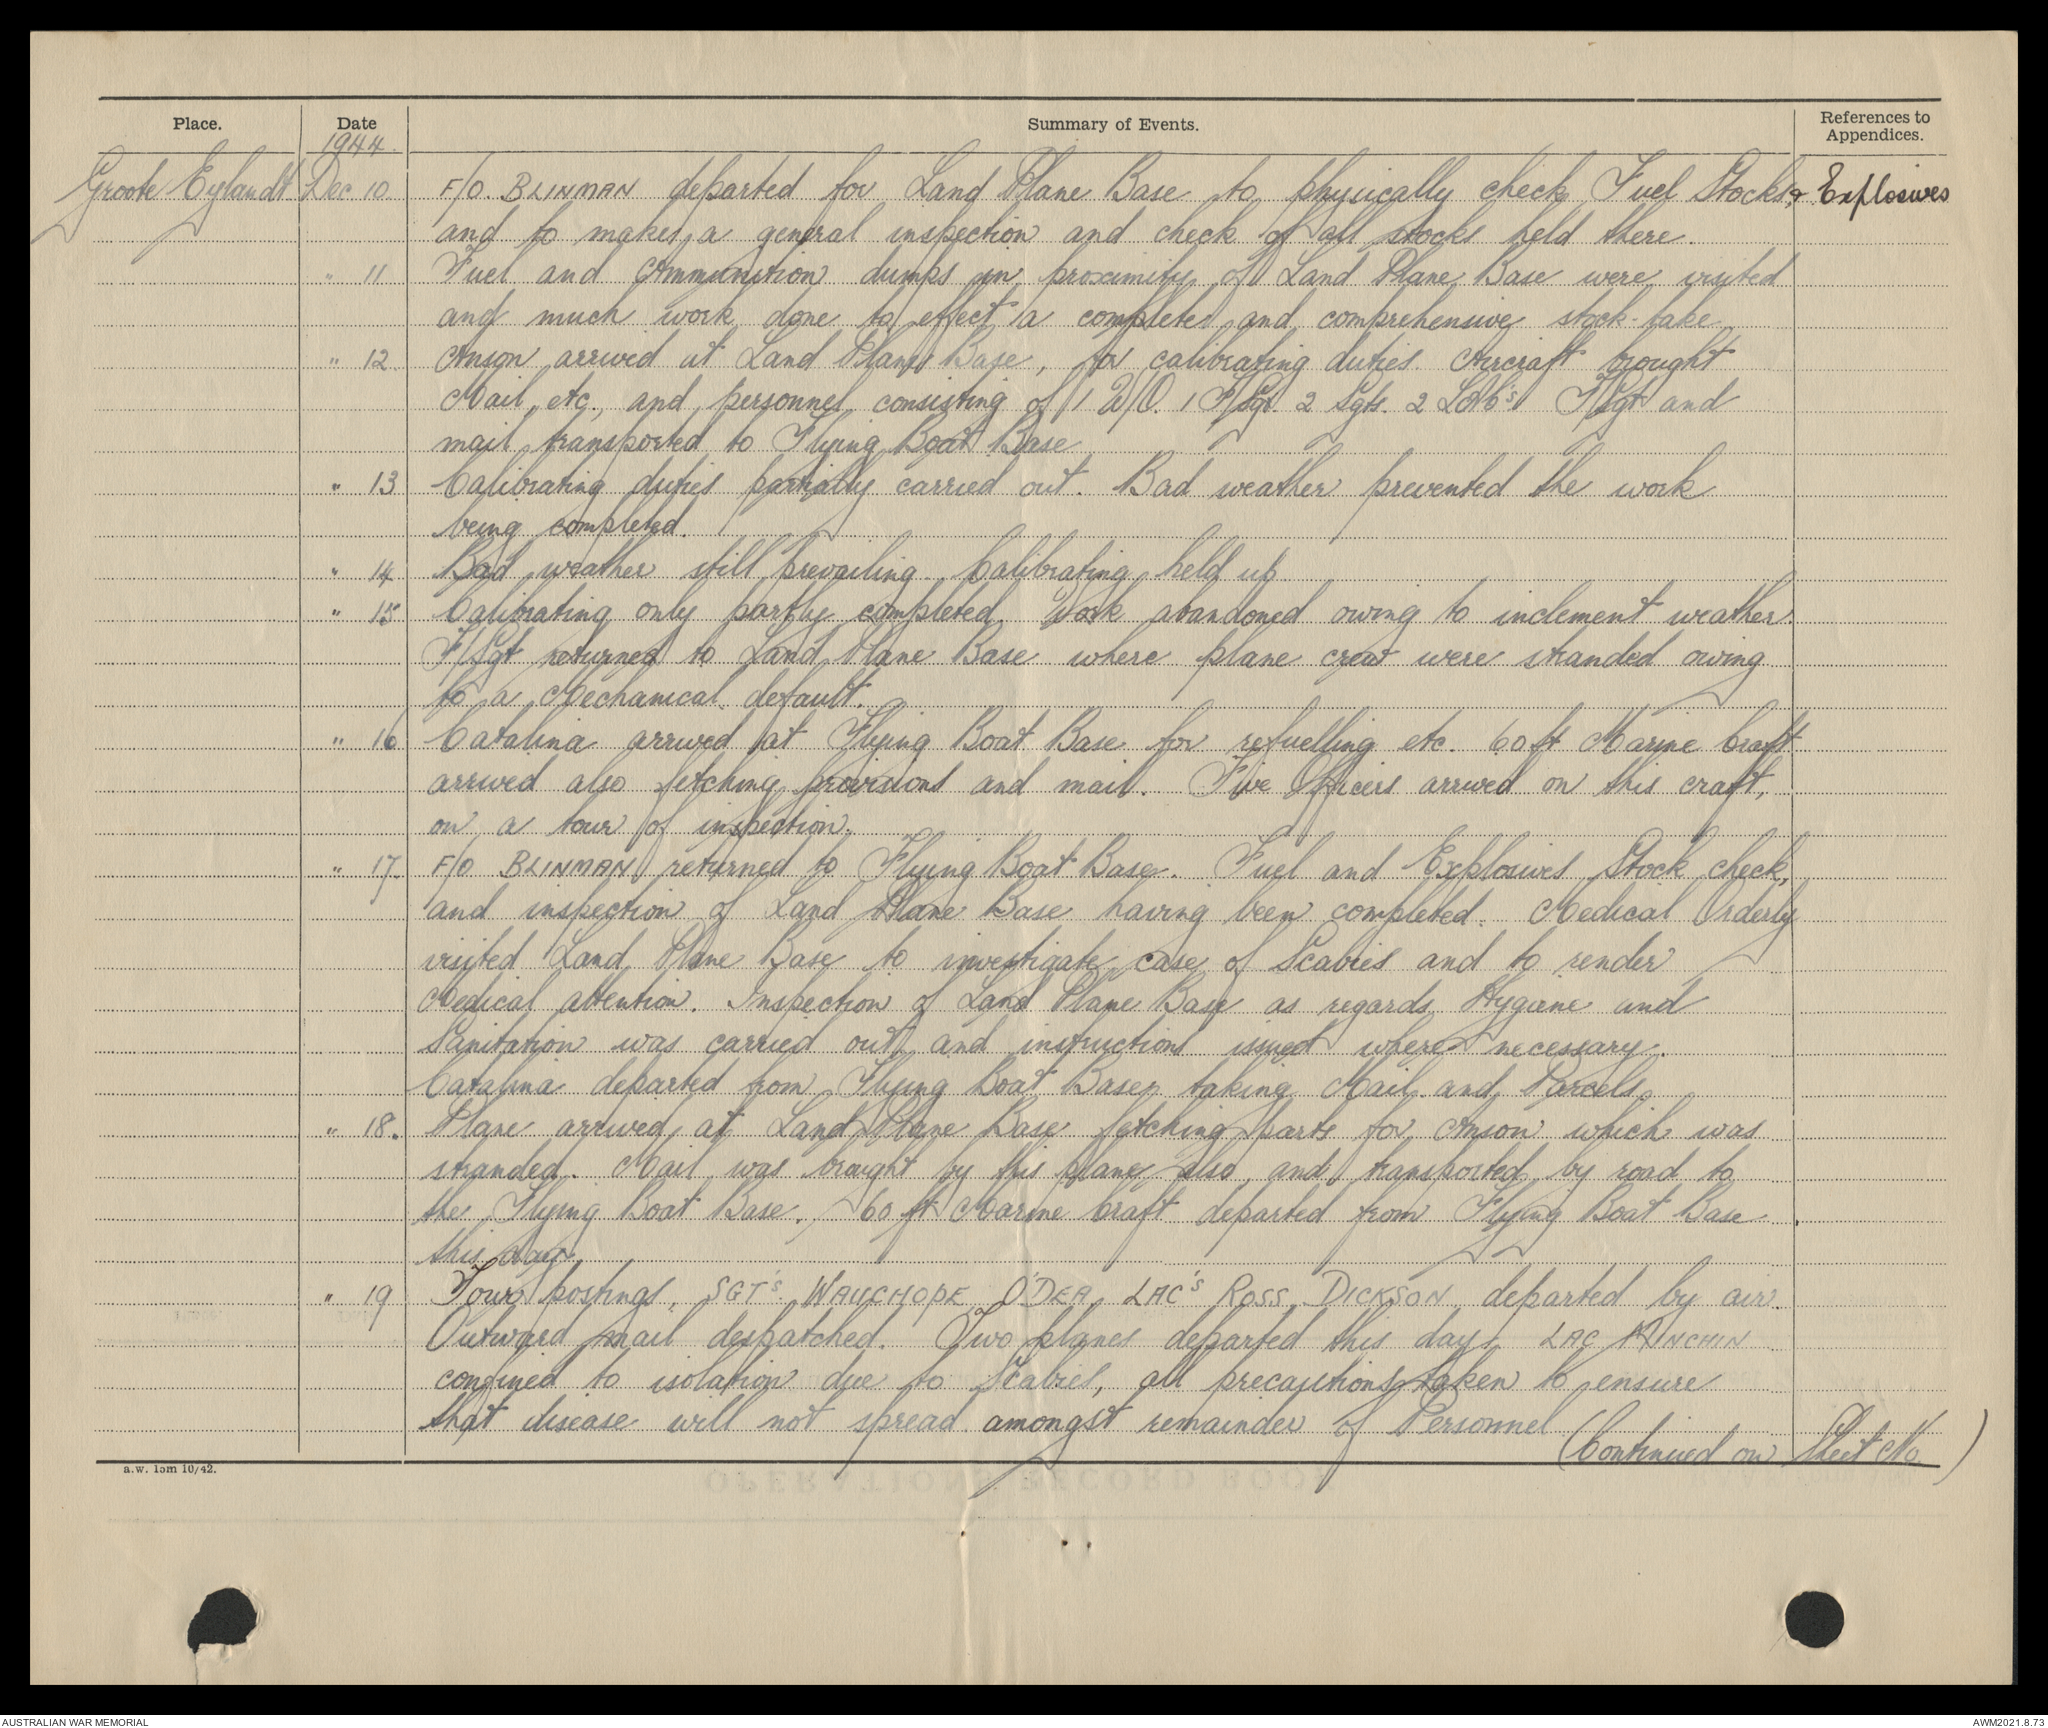 Place.
Date
Summary of Events.
References to
Appendices.
1944.
Groote Eylandt Dec 10. F/O. BLINMAN departed for Land Plane Base to physically check Fuel Stocks, & Explosives
and to make a general inspection and check of all stocks held there.
" 11 Fuel and Ammunition dumps in proximity of Land Plane Base were visited
and much work done to effect a complete and comprehensive stock-take.
" 12. Anson arrived at Land Plane Base, for calibrating duties. Aircraft brought
Mail, etc, and personnel consisting of 1 W/O. 1 F/Sgt. 2 Sgts. 2 LAC's F/Sgt and
mail transported to Flying Boat Base
" 13 Calibrating duties partially carried out. Bad weather prevented the work
being completed.
" 14 Bad weather still prevailing. Calibrating held up
" 15 Calibrating only partly completed. Work abandoned owing to inclement weather.
F/Sgt returned to Land Plane Base where plane crew were stranded owing
to a Mechanical default.
" 16 Catalina arrived at Flying Boat Base for refuelling etc. 60 ft Marine Craft
arrived also fetching provisions and mail. Five Officers arrived on this craft,
on a tour of inspection.
" 17. F/O BLINMAN returned to Flying Boat Base. Fuel and Explosives Stock check,
and inspection of Land Plane Base having been completed. Medical Orderly
visited Land Plane Base to investigate case of Scabies and to render
Medical attention. Inspection of Land Plane Base as regards Hygiene and
Sanitation was carried out and instructions issued where necessary.
Catalina departed from Flying Boat Base taking Mail and Parcels.
" 18. Plane arrived at Land Plane Base fetching parts for Anson which was
stranded. Mail was brought by this plane also, and transported by road to
the Flying Boat Base. 60 ft Marine Craft departed from Flying Boat Base
this day.
" 19 Four postings, SGT's WAUCHOPE, O'DEA, LAC's ROSS, DICKSON departed by air.
Outward mail despatched. Two planes departed this day. LAC MINCHIN
confined to isolation due to Scabies, all precautions taken to ensure
that disease will not spread amongst remainder of Personnel
(Continued on Sheet No. )
a.w. 15m 10/42.
OPERATIONS RECORD BOOK
AUSTRALIAN WAR MEMORIAL
AWM2021.8.73